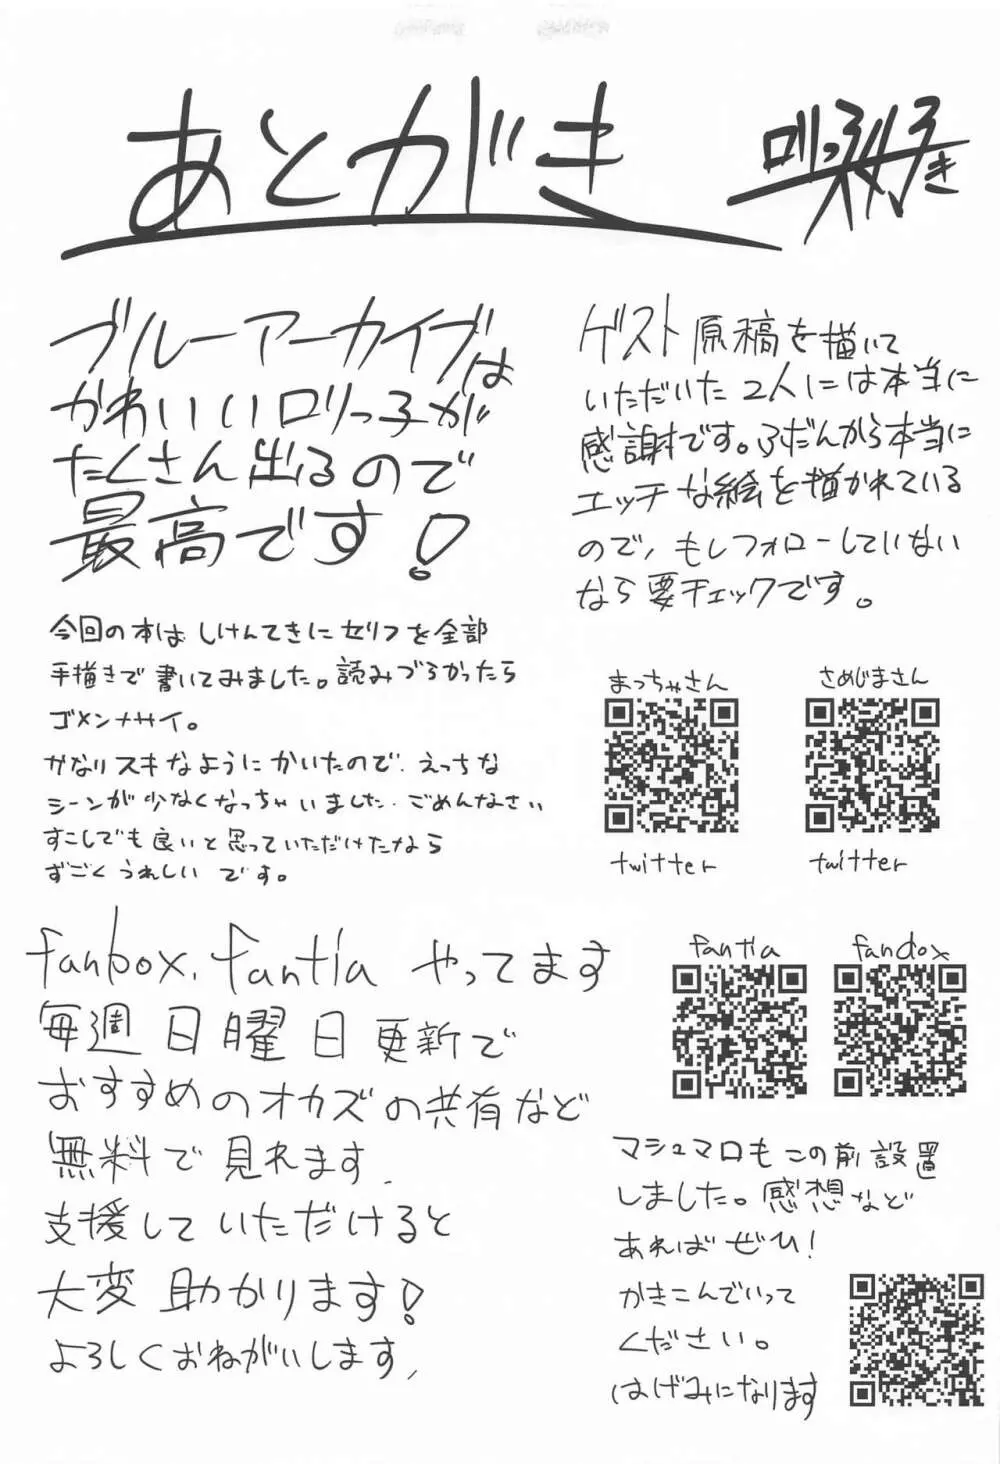 あとがき
ロリっ子大好き
ブルーアーカイブは
かわいいロリっ子が
たくさん出るので
最高です!
今回の本はしけんてきにセリフを全部
手描きで書いてみました。読みづらかったら
ゴメンナサイ。
かなりスキなようにかいたので、えっちな
シーンが少なくなっちゃいました、ごめんなさい
すこしでも良いと思っていただけたなら
すごくうれしいです。
ゲスト原稿を描いて
いただいた2人には本当に
感謝です。ふだんから本当に
エッチな絵を描かれている
ので、もしフォローしていない
なら要チェックです。
まっちゃさん
さめじまさん
twitter
twitter
fanbox、fantia やってます
毎週日曜日更新で
おすすめのオカズの共有など
無料で見れます、
支援していただけると
大変助かります!
よろしくおねがいします、
fantia
fanbox
マシュマロもこの前設置
しました。感想など
あればぜひ!
かきこんでいって
ください。
はげみになります